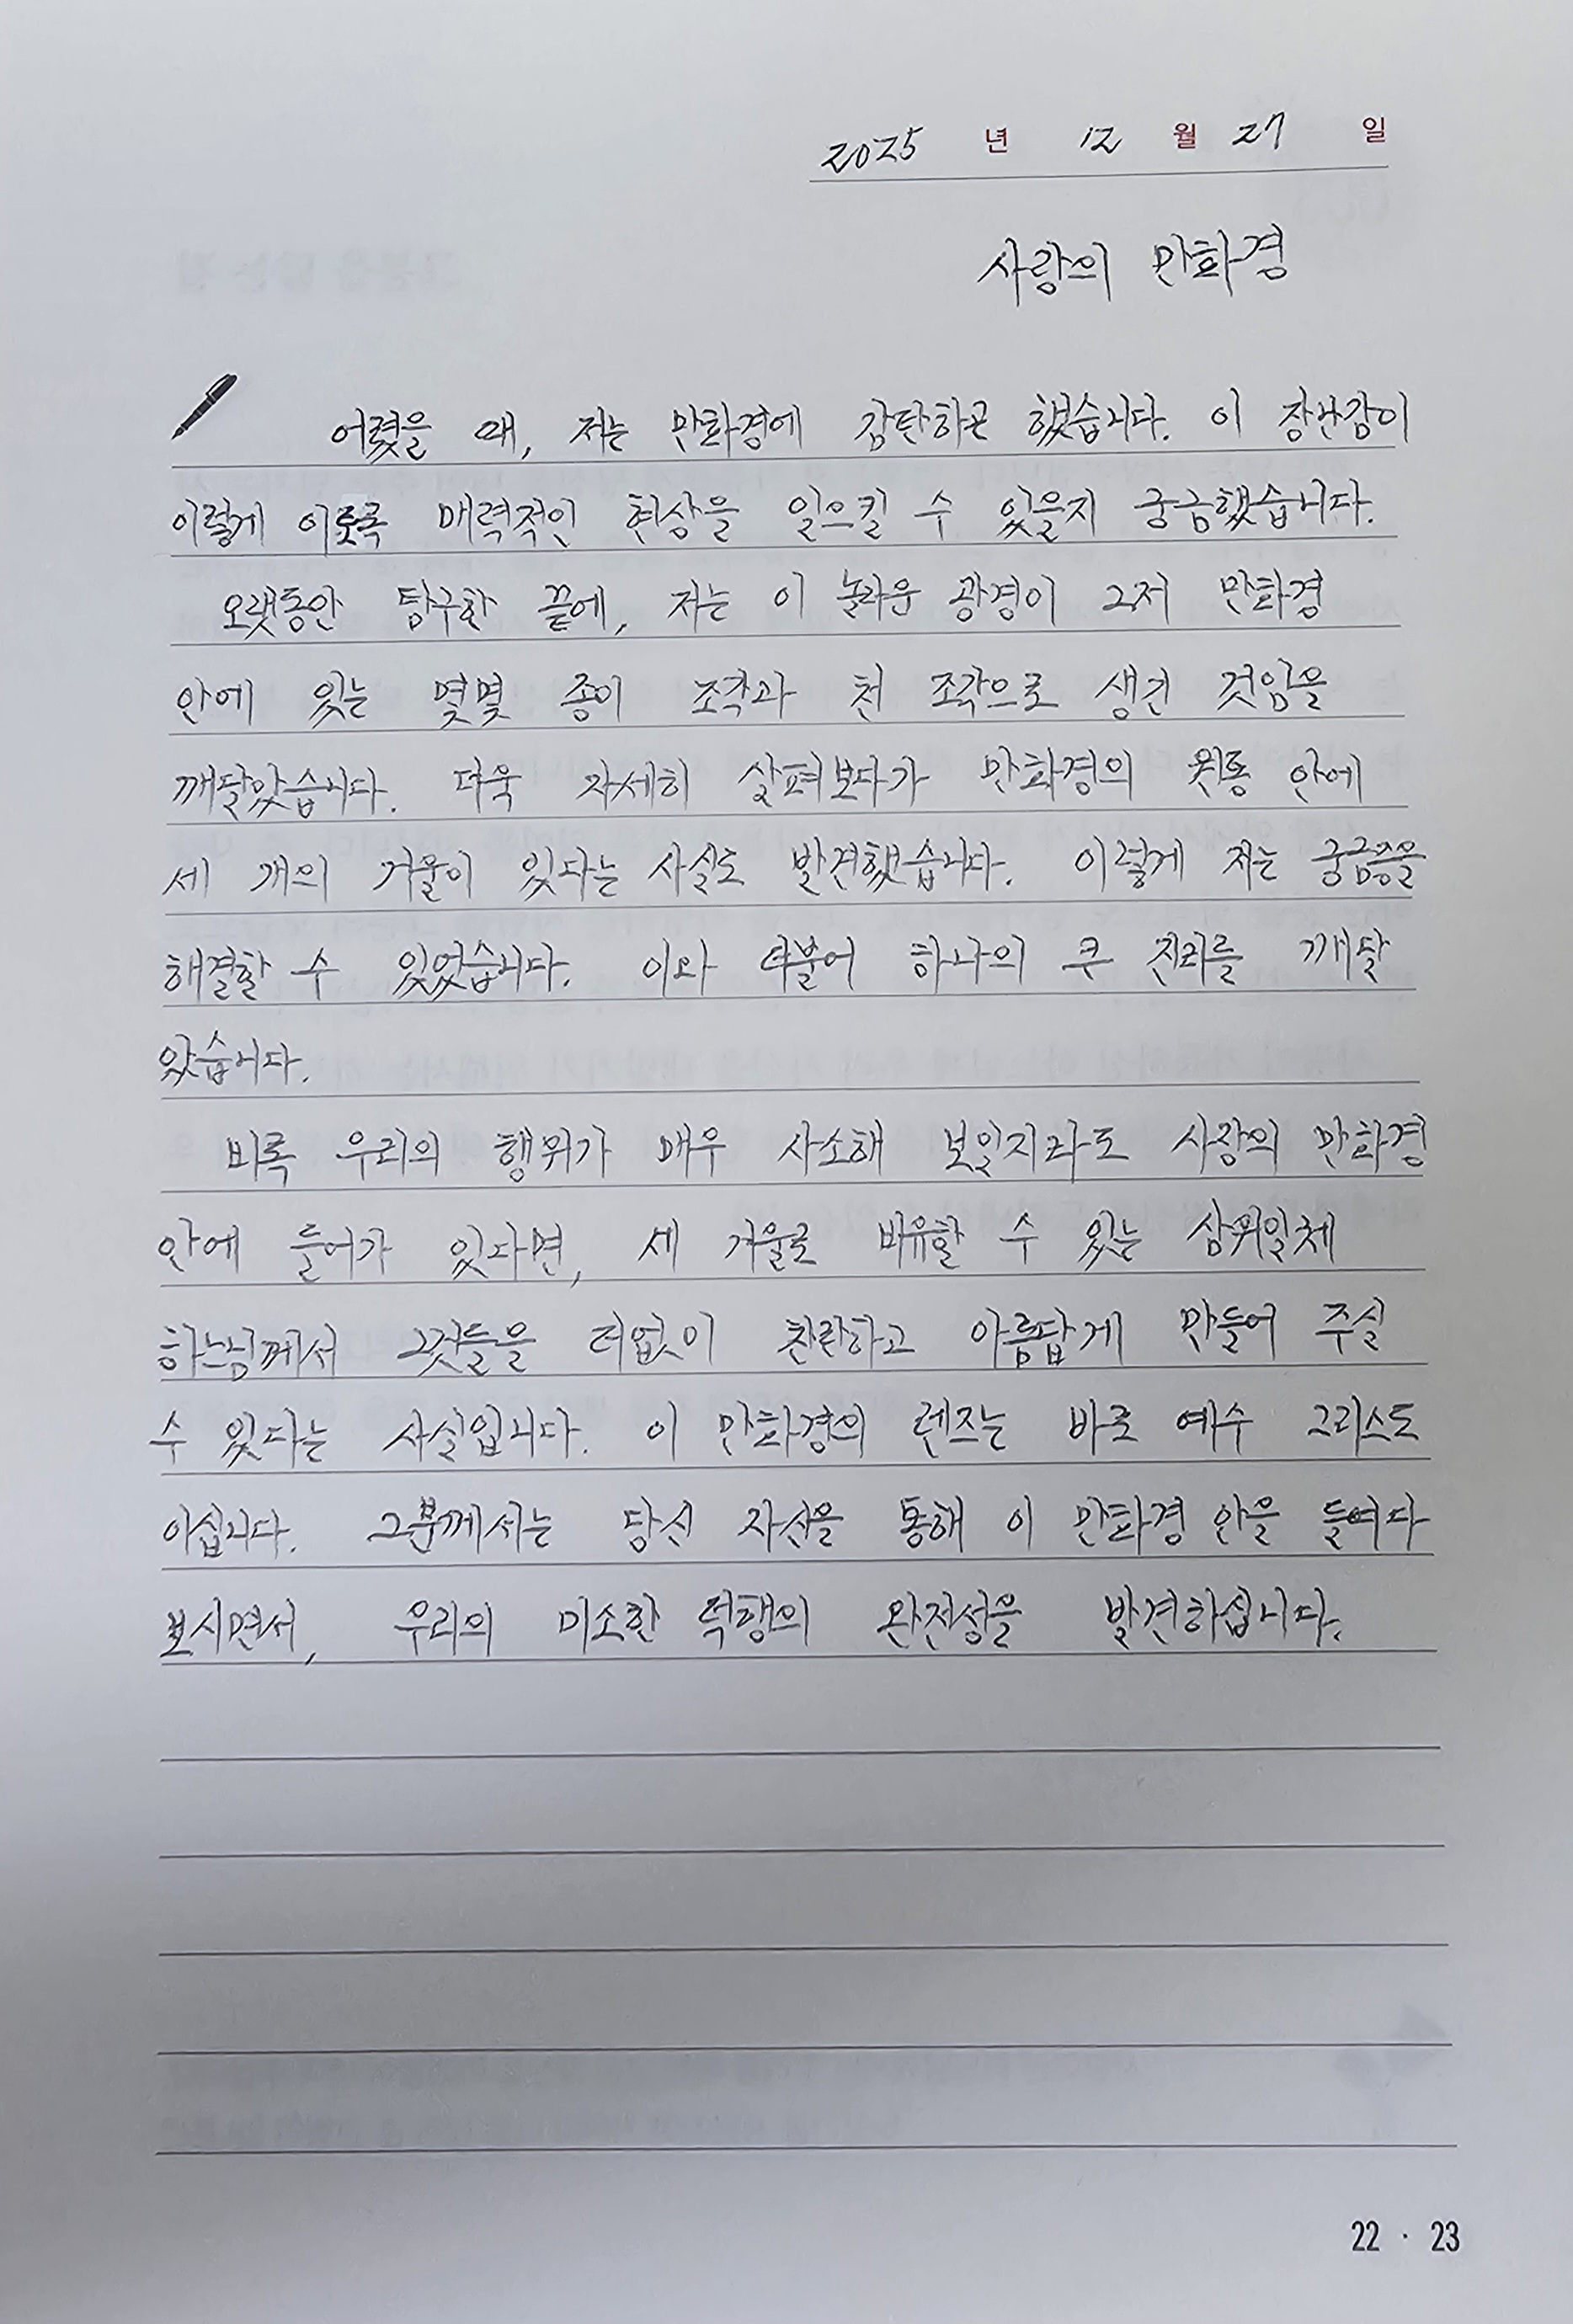 2025 년 12 월 27 일
사랑의 만화경
어렸을 때, 저는 만화경에 감탄하곤 했습니다. 이 장난감이
이렇게 이토록 매력적인 현상을 일으킬 수 있을지 궁금했습니다.
오랫동안 탐구한 끝에, 저는 이 놀라운 광경이 그저 만화경
안에 있는 몇몇 종이 조각과 천 조각으로 생긴 것임을
깨달았습니다. 더욱 자세히 살펴보다가 만화경의 원통 안에
세 개의 거울이 있다는 사실도 발견했습니다. 이렇게 저는 궁금증을
해결할 수 있었습니다. 이와 더불어 하나의 큰 진리를 깨달
았습니다.
비록 우리의 행위가 매우 사소해 보일지라도 사랑의 만화경
안에 들어가 있다면, 세 거울로 비유할 수 있는 삼위일체
하느님께서 그것들을 더없이 찬란하고 아름답게 만들어 주실
수 있다는 사실입니다. 이 만화경의 렌즈는 바로 예수 그리스도
이십니다. 그분께서는 당신 자신을 통해 이 만화경 안을 들여다
보시면서, 우리의 미소한 덕행의 완전성을 발견하십니다.
22 · 23